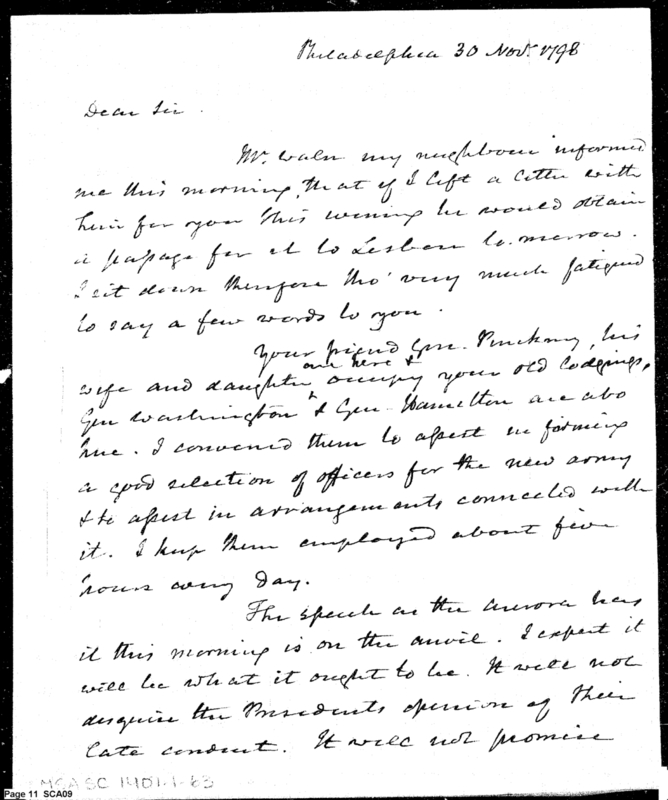 Philadelphia 30 Nov. 1798
Dear Sir.
Mr. Waln my neighbour informed
me this morning, that if I left a letter with
him for you this evening he would obtain
a passage for it to Lisbon to-morrow.
I sit down therefore tho' very much fatigued
to say a few words to you.
Your friend Gen. Pinckney, his
wife and daughter are here & occupy your old lodgings,
Gen Washington & Gen. Hamilton are also
here. I convened them to assist in forming
a good selection of officers for the new army
& to assist in arrangements connected with
it. I keep them employed about five
hours every day.
The speech as the Aurora has
it this morning is on the anvil. I expect it
will be what it ought to be. It will not
disguise the Presidents opinion of their
late conduct. It will not promise
MSA SC 1401-1-63
Page 11 SCA09